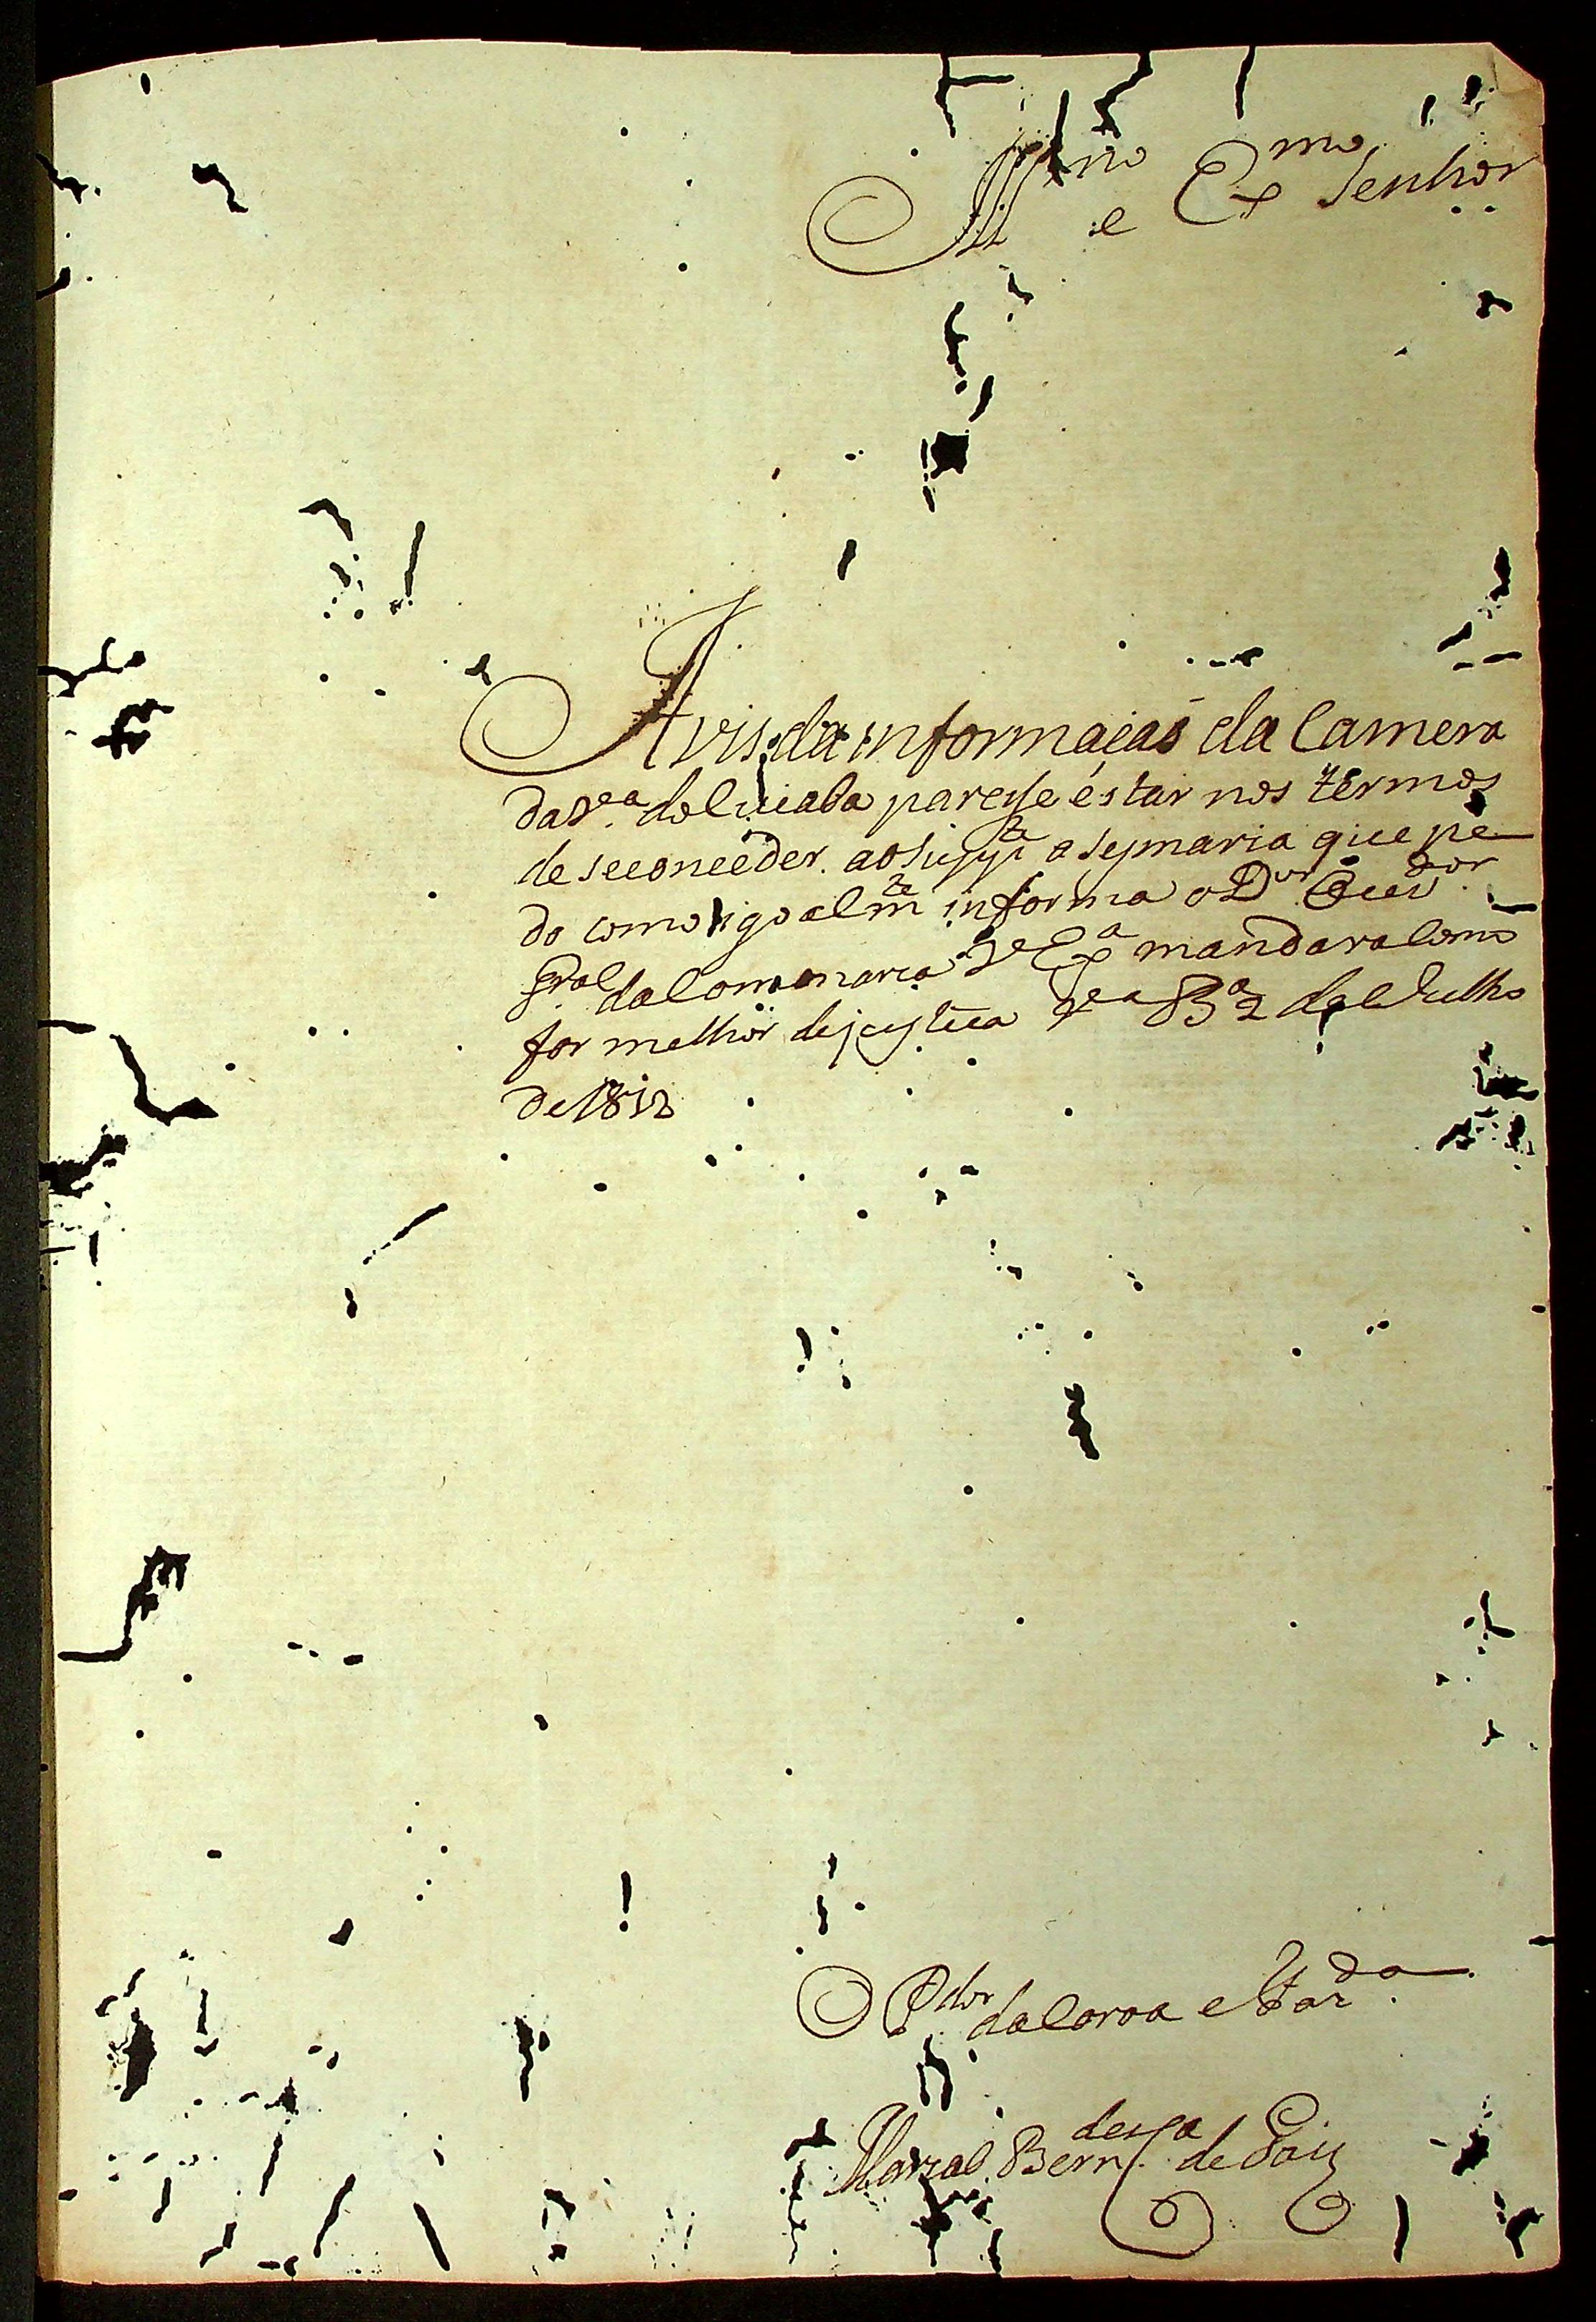 Ill.mo e Ex.mo Senhor
Avis da informacaõ da Camera
da V.ª do Cuiaba paresse estar nos termos
de seconceder ao supp.te a sesmaria que pe
do como igoalm.te informa o D.or Ouv.dor
G.ral da Comarca V.Ex.ª mandara como
for melhor dejustica V.ª B.ª 2 de Julho
de 1812
O P.dor da Coroa e Faz.da
Marcal Bern.des de